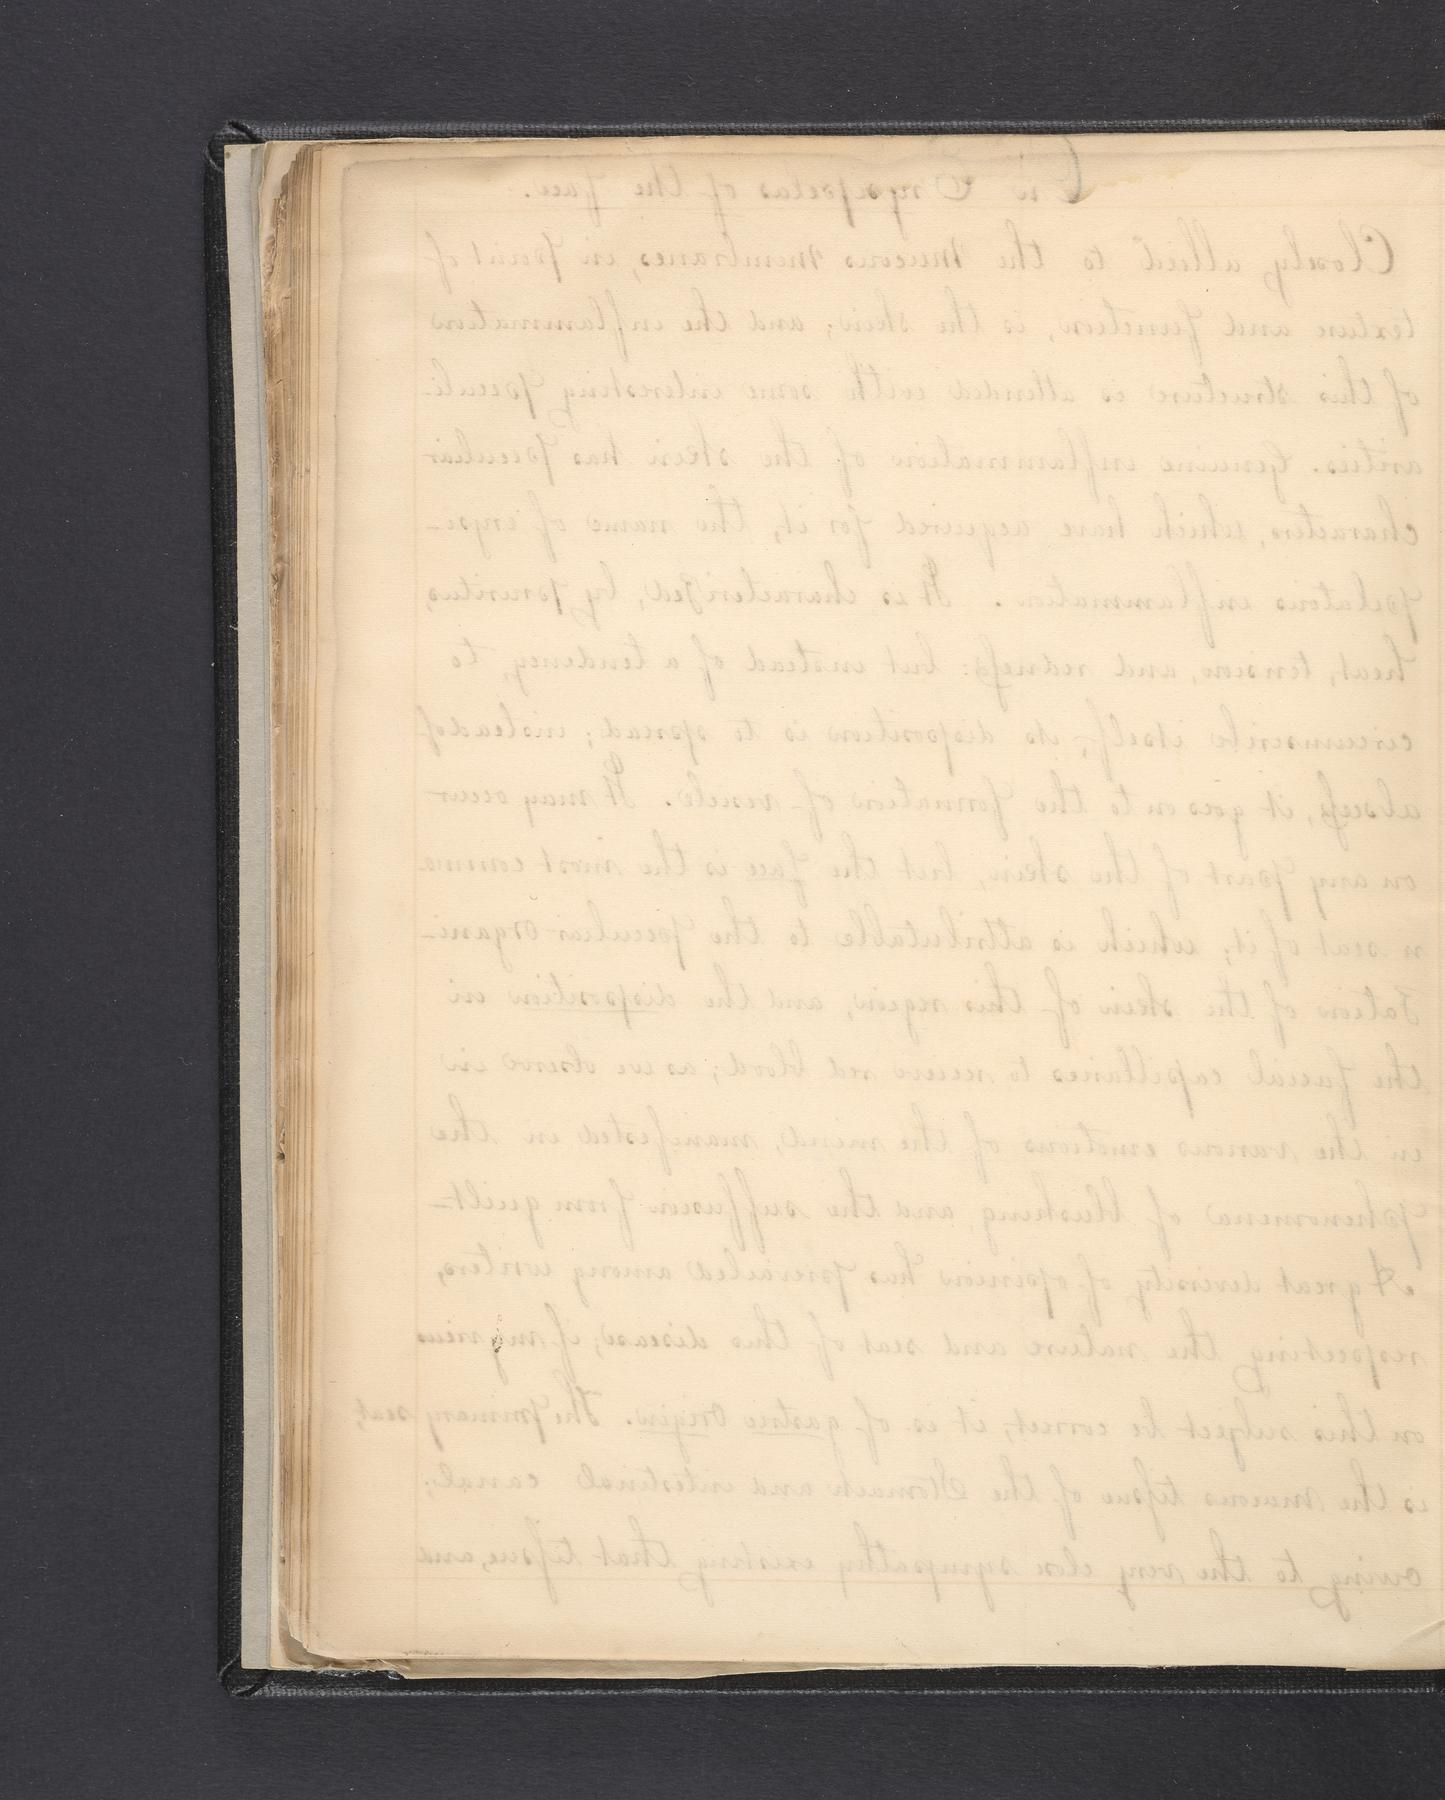 Erysipelas of the face.
Closely allied to the Mucous Membranes, in point of
texture and function, is the skin; and the inflammation
of this structure is attended with some interesting peculi-
arities. Genuine inflammation of the skin has peculiar
characters, which have acquired for it, the name of erysi-
pelatous inflammation. It is characterized, by pruritus,
heat, tension, and redness: but instead of a tendency to
circumscribe itself, its disposition is to spread; instead of
abscess, it goes on to the formation of vesicles. It may occur
on any part of the skin, but the face is the most commo
n seat of it; which is attributable to the peculiar organi-
zation of the skin of this region, and the disposition in
the facial capillaries to receive red blood; as we observe in
in the various emotions of the mind, manifested in the
phenomena of blushing and the suffusion from guilt-
A great diversity of opinion has prevailed among writers,
respecting the nature and seat of this disease; if my views
on this subject be correct, it is of gastric origin. The primary seat,
is the Mucous tissue of the Stomach and intestinal canal;
owing to the very close sympathy existing that tissue, and